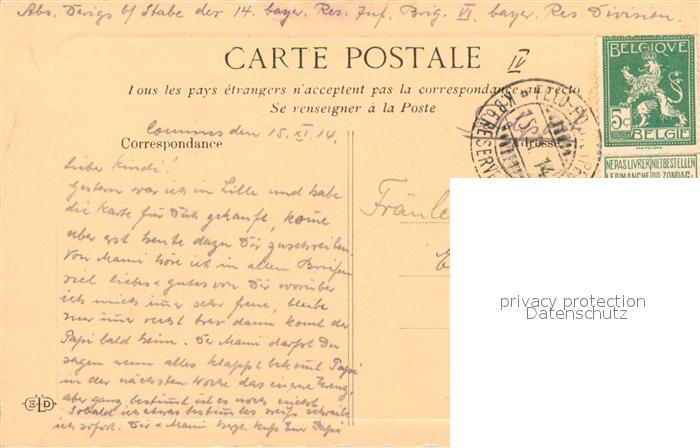 Abs. Derigs b/ Stabe der 14. bayer. Res. Inf. Brig. VI bayer. Res. Division.
CARTE POSTALE
IV
Tous les pays étrangers n'acceptent pas la correspondance au recto
Se renseigner à la Poste
BELGIQVE
5c
BELGIË
NE PAS LIVRER
NIET BESTELLEN
LE DIMANCHE
OP ZONDAG
Comines den 15. XI. 14.
Correspondance
Adresse
K.B.6.RESERVE
Lieber Kindi!
Gestern war ich in Lille und habe
die Karte für Dich gekauft, komme
aber erst heute dazu Dir zu schreiben.
Von Mami höre ich in allen Briefen
viel liebes & gutes von Dir worüber
ich mich immer sehr freue, bleibe
nur immer recht brav dann kommt der
Papi bald heim. Der Mami darfst Du
sagen wenn alles klappt bekommt Papi
in der nächsten Woche das eiserne Kreuz,
aber ganz bestimmt ist es noch nicht.
Sobald ich etwas bestimmtes weiß schreibe
ich sofort. Dir & Mami herzl. Kuß Euer Papi
Fräulein
privacy protection
Datenschutz
ELD